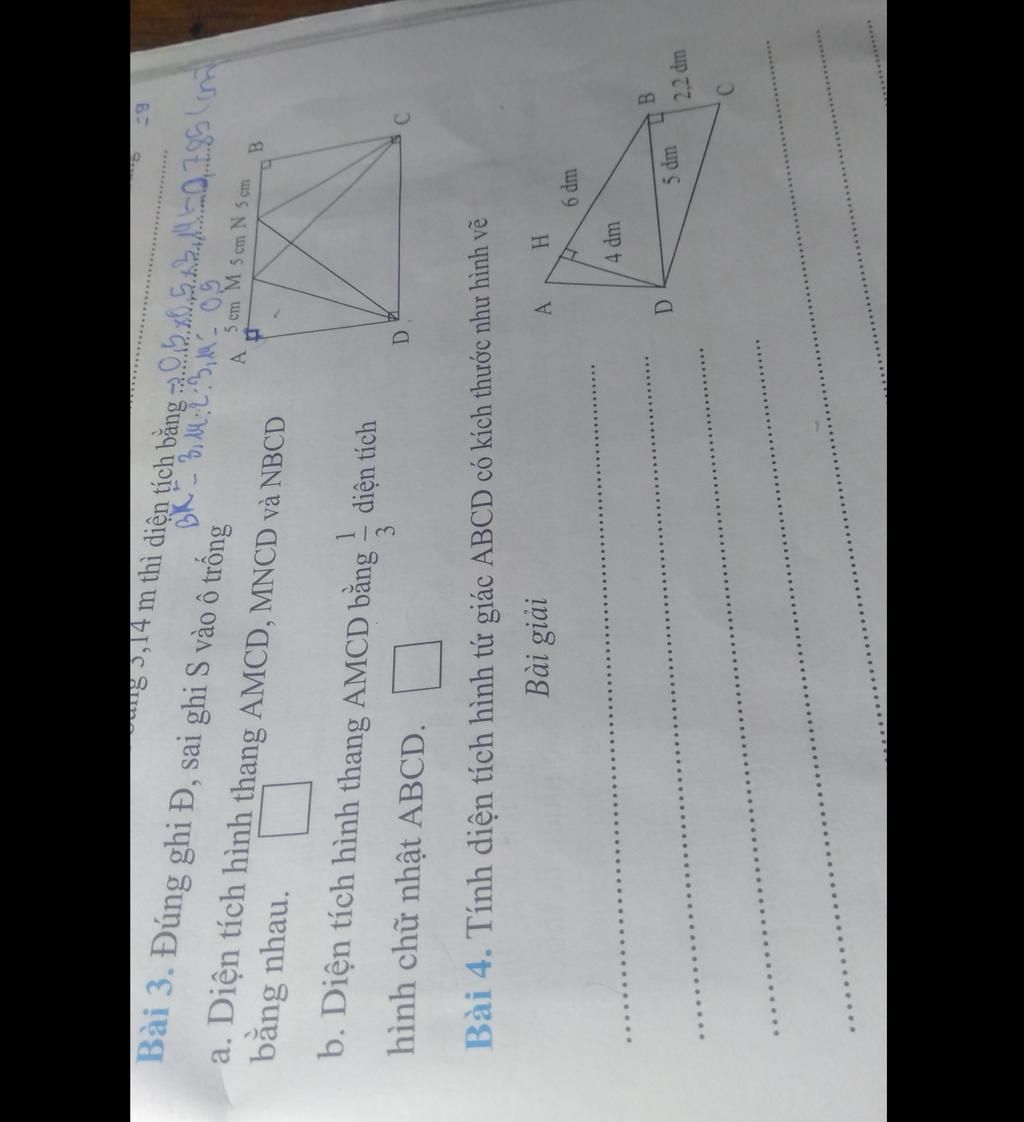 3,14 m thì diện tích bằng
Bài 3. Đúng ghi Đ, sai ghi S vào ô trống
a. Diện tích hình thang AMCD, MNCD và NBCD
bằng nhau.
A 5 cm M 5 cm N 5 cm B
D C
b. Diện tích hình thang AMCD bằng 1/3 diện tích
hình chữ nhật ABCD.
Bài 4. Tính diện tích hình tứ giác ABCD có kích thước như hình vẽ
Bài giải
A H
6 dm
4 dm
B
D 5 dm 2,2 dm
C